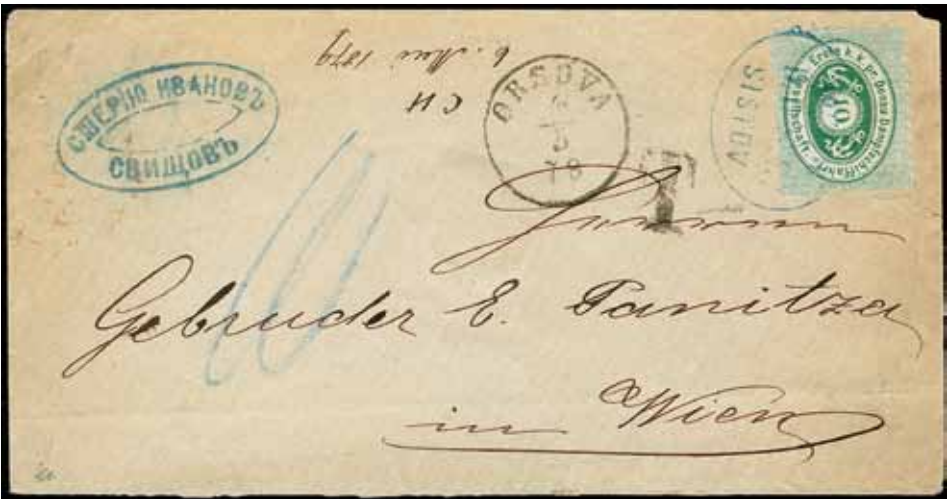 СШЕРЮ ИВАНОВЪ
СВИЩОВЪ
6. Mai 1879
ORSOVA
5
78
SISTOV
Erste k. k. pr. Donau Dampfschiffahrt-Gesellschaft.
10
10
T
Herren
Gebruder E. Tanitza
in Wien